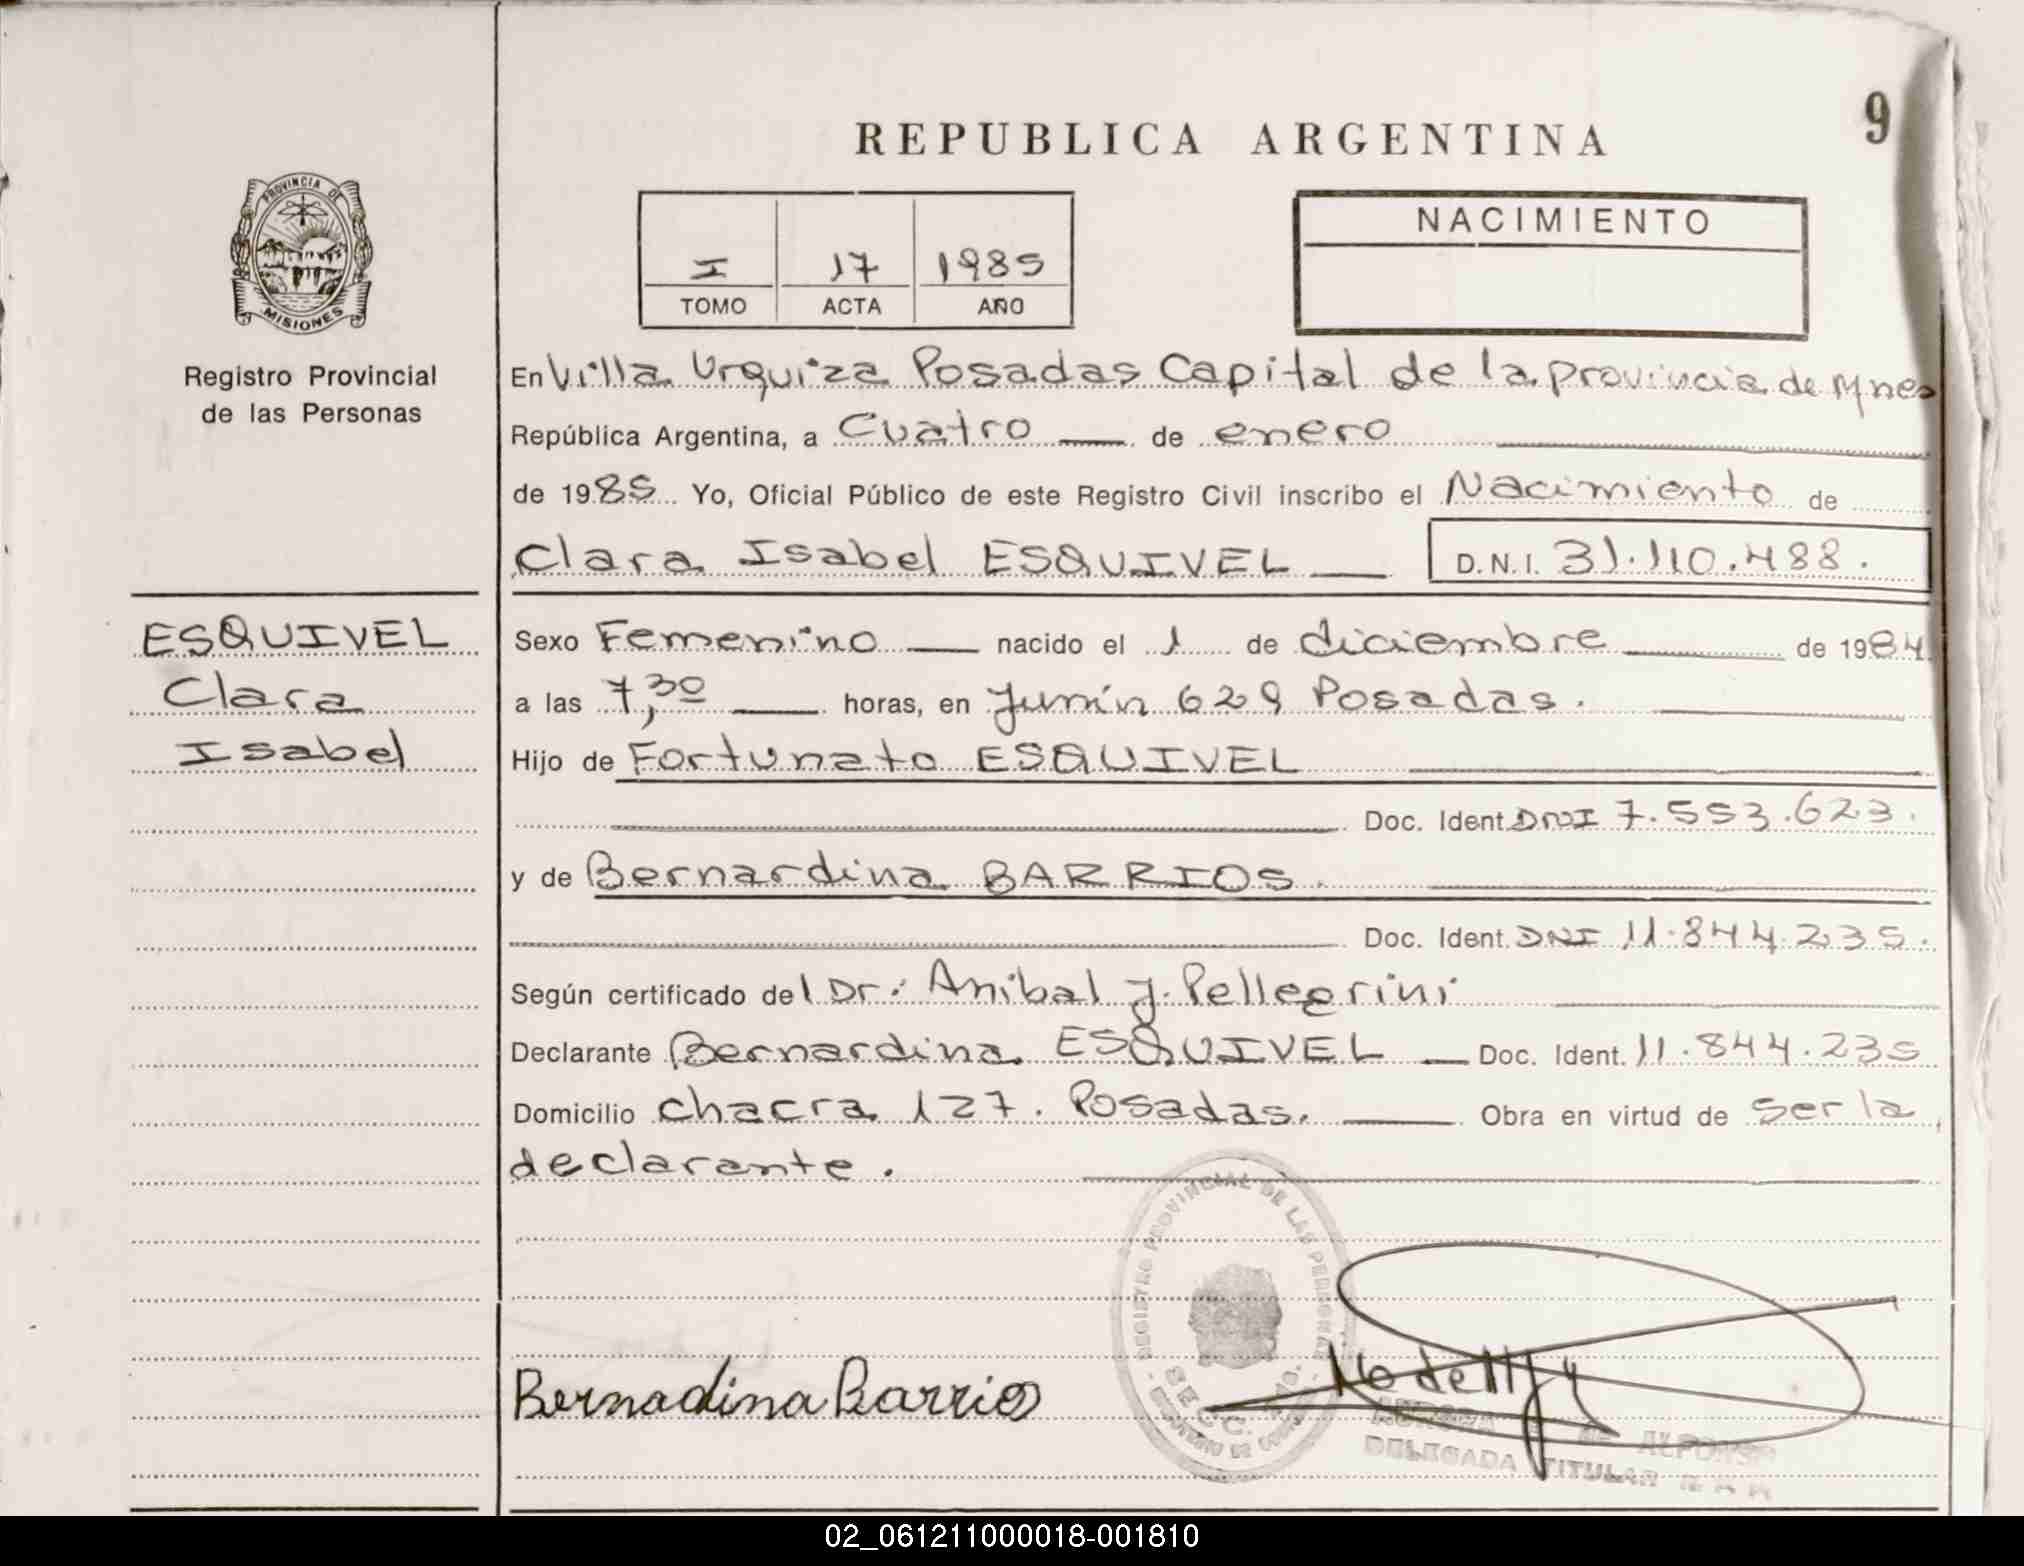 9
REPUBLICA ARGENTINA
PROVINCIA DE
MISIONES
NACIMIENTO
I 17 1985
TOMO ACTA AÑO
Registro Provincial
de las Personas
En Villa Urquiza Posadas Capital de la provincia de Mnes
República Argentina, a Cuatro de enero
de 1985 Yo, Oficial Público de este Registro Civil inscribo el Nacimiento de
Clara Isabel ESQUIVEL D.N.I. 31.110.488.
ESQUIVEL
Clara
Isabel
Sexo Femenino nacido el 1 de diciembre de 1984
a las 7,30 horas, en Junín 629 Posadas.
Hijo de Fortunato ESQUIVEL
Doc. Ident. DNI 7.553.623.
y de Bernardina BARRIOS.
Doc. Ident. DNI 11.844.235.
Según certificado del Dr. Anibal J. Pellegrini
Declarante Bernardina ESQUIVEL Doc. Ident. 11.844.235
Domicilio chacra 127. Posadas. Obra en virtud de ser la
declarante.
REGISTRO PROVINCIAL DE LAS PERSONAS
SECC.
Bernadina Barrios
DE ALFONSO
DELEGADA TITULAR
02_061211000018-001810